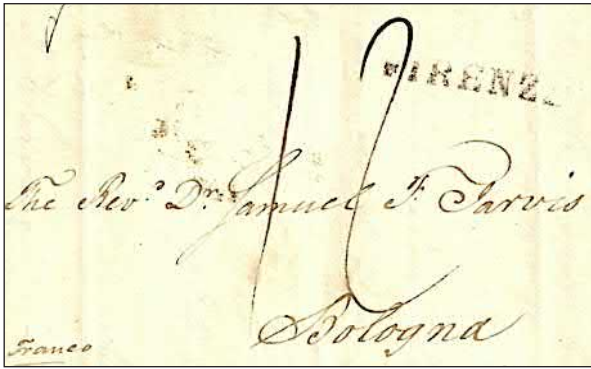 FIRENZ
12
The Rev.d Dr. Samuel F. Jarvis
Bologna
Franco